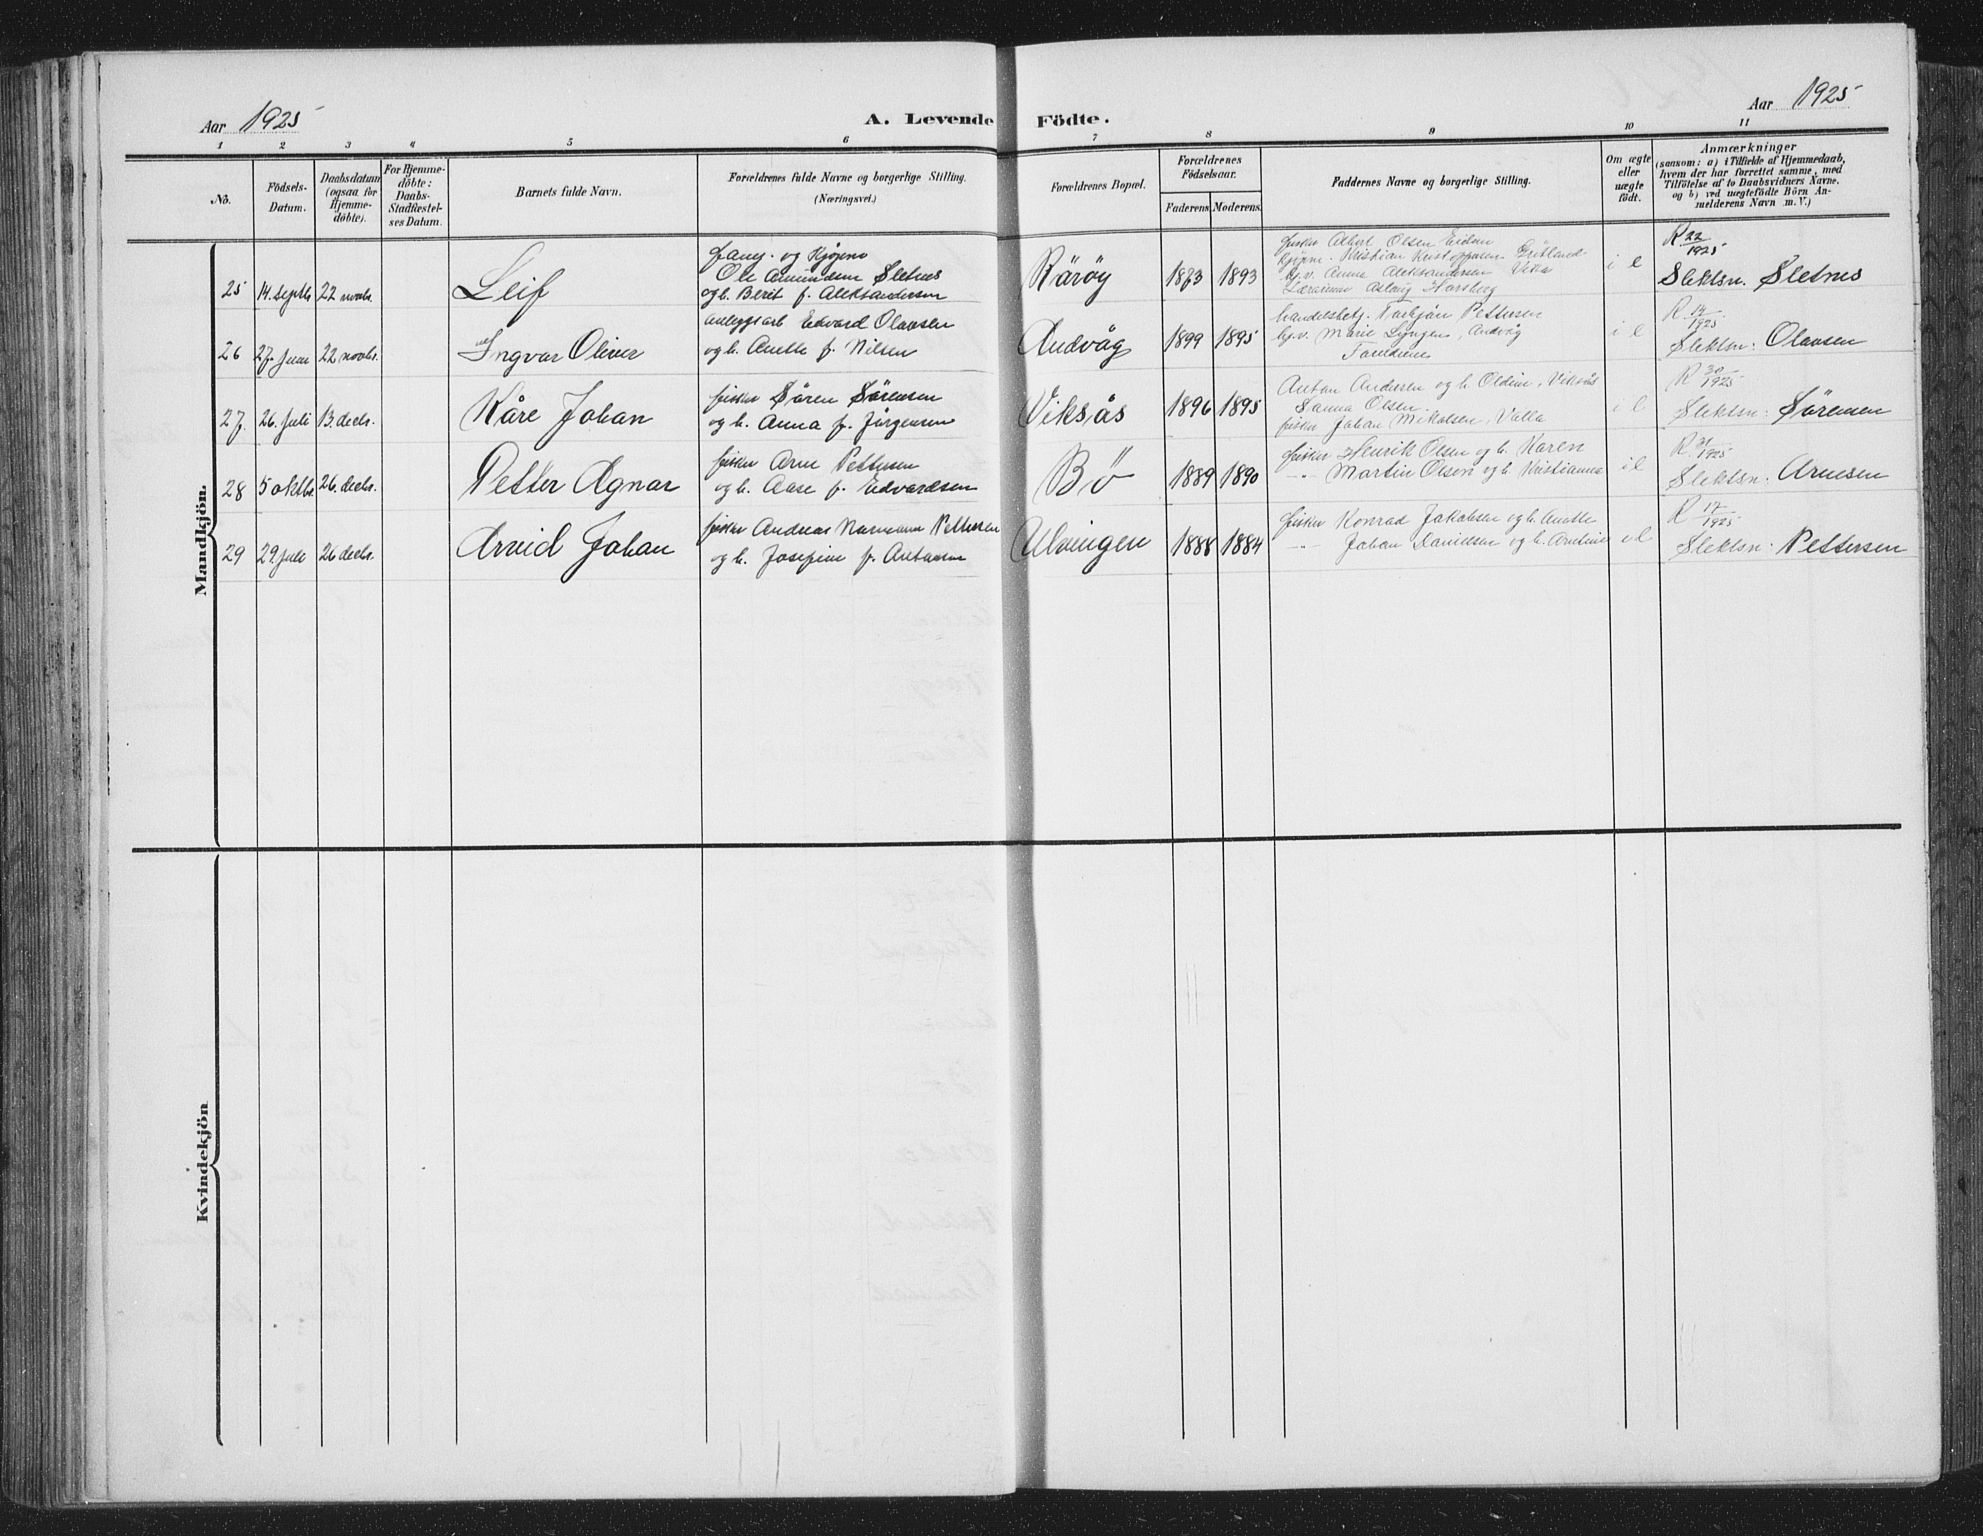 Aar 1925
A. Levende Födte.
Aar 1925
1 2 3 4 5 6 7 8 9 10 11
No.
Födsels-Datum.
Daabsdatum (ogsaa for Hjemmedöbte).
For Hjemmedöbte: Daabs-Stadfæstelses Datum.
Barnets fulde Navn.
Forældrenes fulde Navne og borgerlige Stilling.
(Næringsvei.)
Forældrenes Bopæl.
Forældrenes Födselsaar.
Faderens. Moderens.
Faddernes Navne og borgerlige Stilling.
Om ægte eller uægte født.
Anmærkninger
(saasom: a) i Tilfælde af Hjemmedaab,
hvem der har forrettet samme, med
Tilföielse af to Daabsvidners Navne,
og b) ved uægtefödte Börn An-
melderens Navn m. V.)
Mandkjön.
25 14 septb. 22 novbr. Leif
og kjøpm
Ole Amundsen Sletnes
og h. Berit f. Aleksandersen
Rårøy 1883 1893
fisker Albert Olsen Eidsen
kjøpm. Kristian Kristoffersen Grøtland
Anna Aleksandersen Vika
Lærerinne Astrid
i e
R 22/1925
Slektsn. Sletnes
26 27. juni 22 novbr. Ingvar Oliver
anleggsarb Edvard Olavsen
og h. Anette f. Nilsen
Andvåg 1899 1895
handelsbetj. Torbjørn Pettersen
Marie Lyngen, Andvåg
Foreldrene
i e
R 14/1925
Slektsn: Olavsen
27 26. juli 13. decbr. Kåre Johan
fisker Søren Sørensen
og h. Anna f. Jørgensen
Viksås 1896 1895
Anton Andersen og h. Oldine, Viksås
Sanna Olsen.
fisker Johan Mikalsen, Valla
i e
R 30/1925
Slektsn: Sørensen
28 5 oktbr. 26. decbr. Petter Agnar
fisker Arne Pettersen
og h. Aase f. Edvardsen
Bö 1889 1890
fisker Henrik Olsen og h. Karen
-"- Martin Olsen og h. Kristianna
i e
R 31/1925
Slektsn: Arnesen
29 29. juli 26 decbr. Arvid Johan
fisker Andreas Normann Pettersen
og h. Josefine f. Antonsen
Ulvingen 1888 1884
fisker Konrad Jakobsen og h. Anette
-"- Johan Danielsen og h.
i e
R 17/1925
Slektsn: Pettersen
Kvindekjön